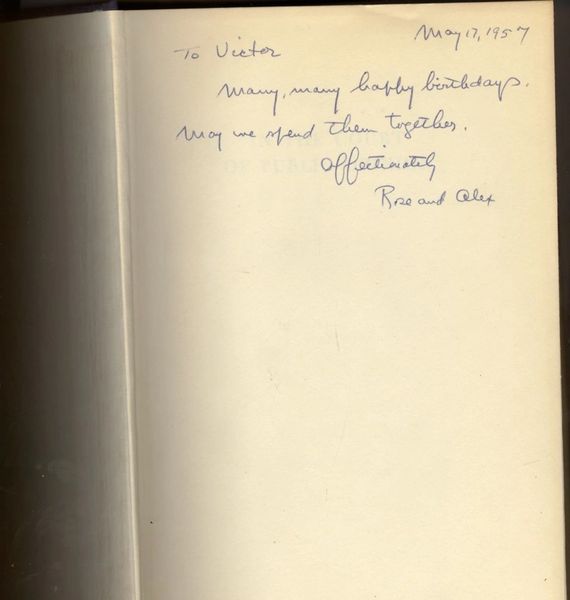 May 17, 1957
To Victor
Many, many happy birthdays.
May we spend them together.
Affectionately
Rose and Alex